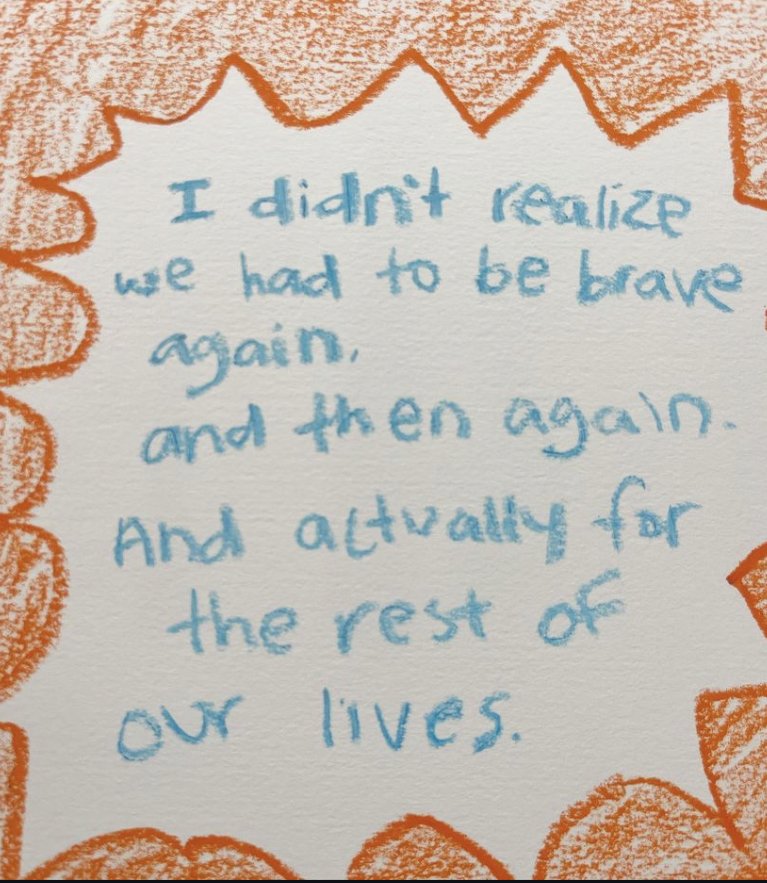 I didn't realize
we had to be brave
again.
and then again.
And actually for
the rest of
our lives.